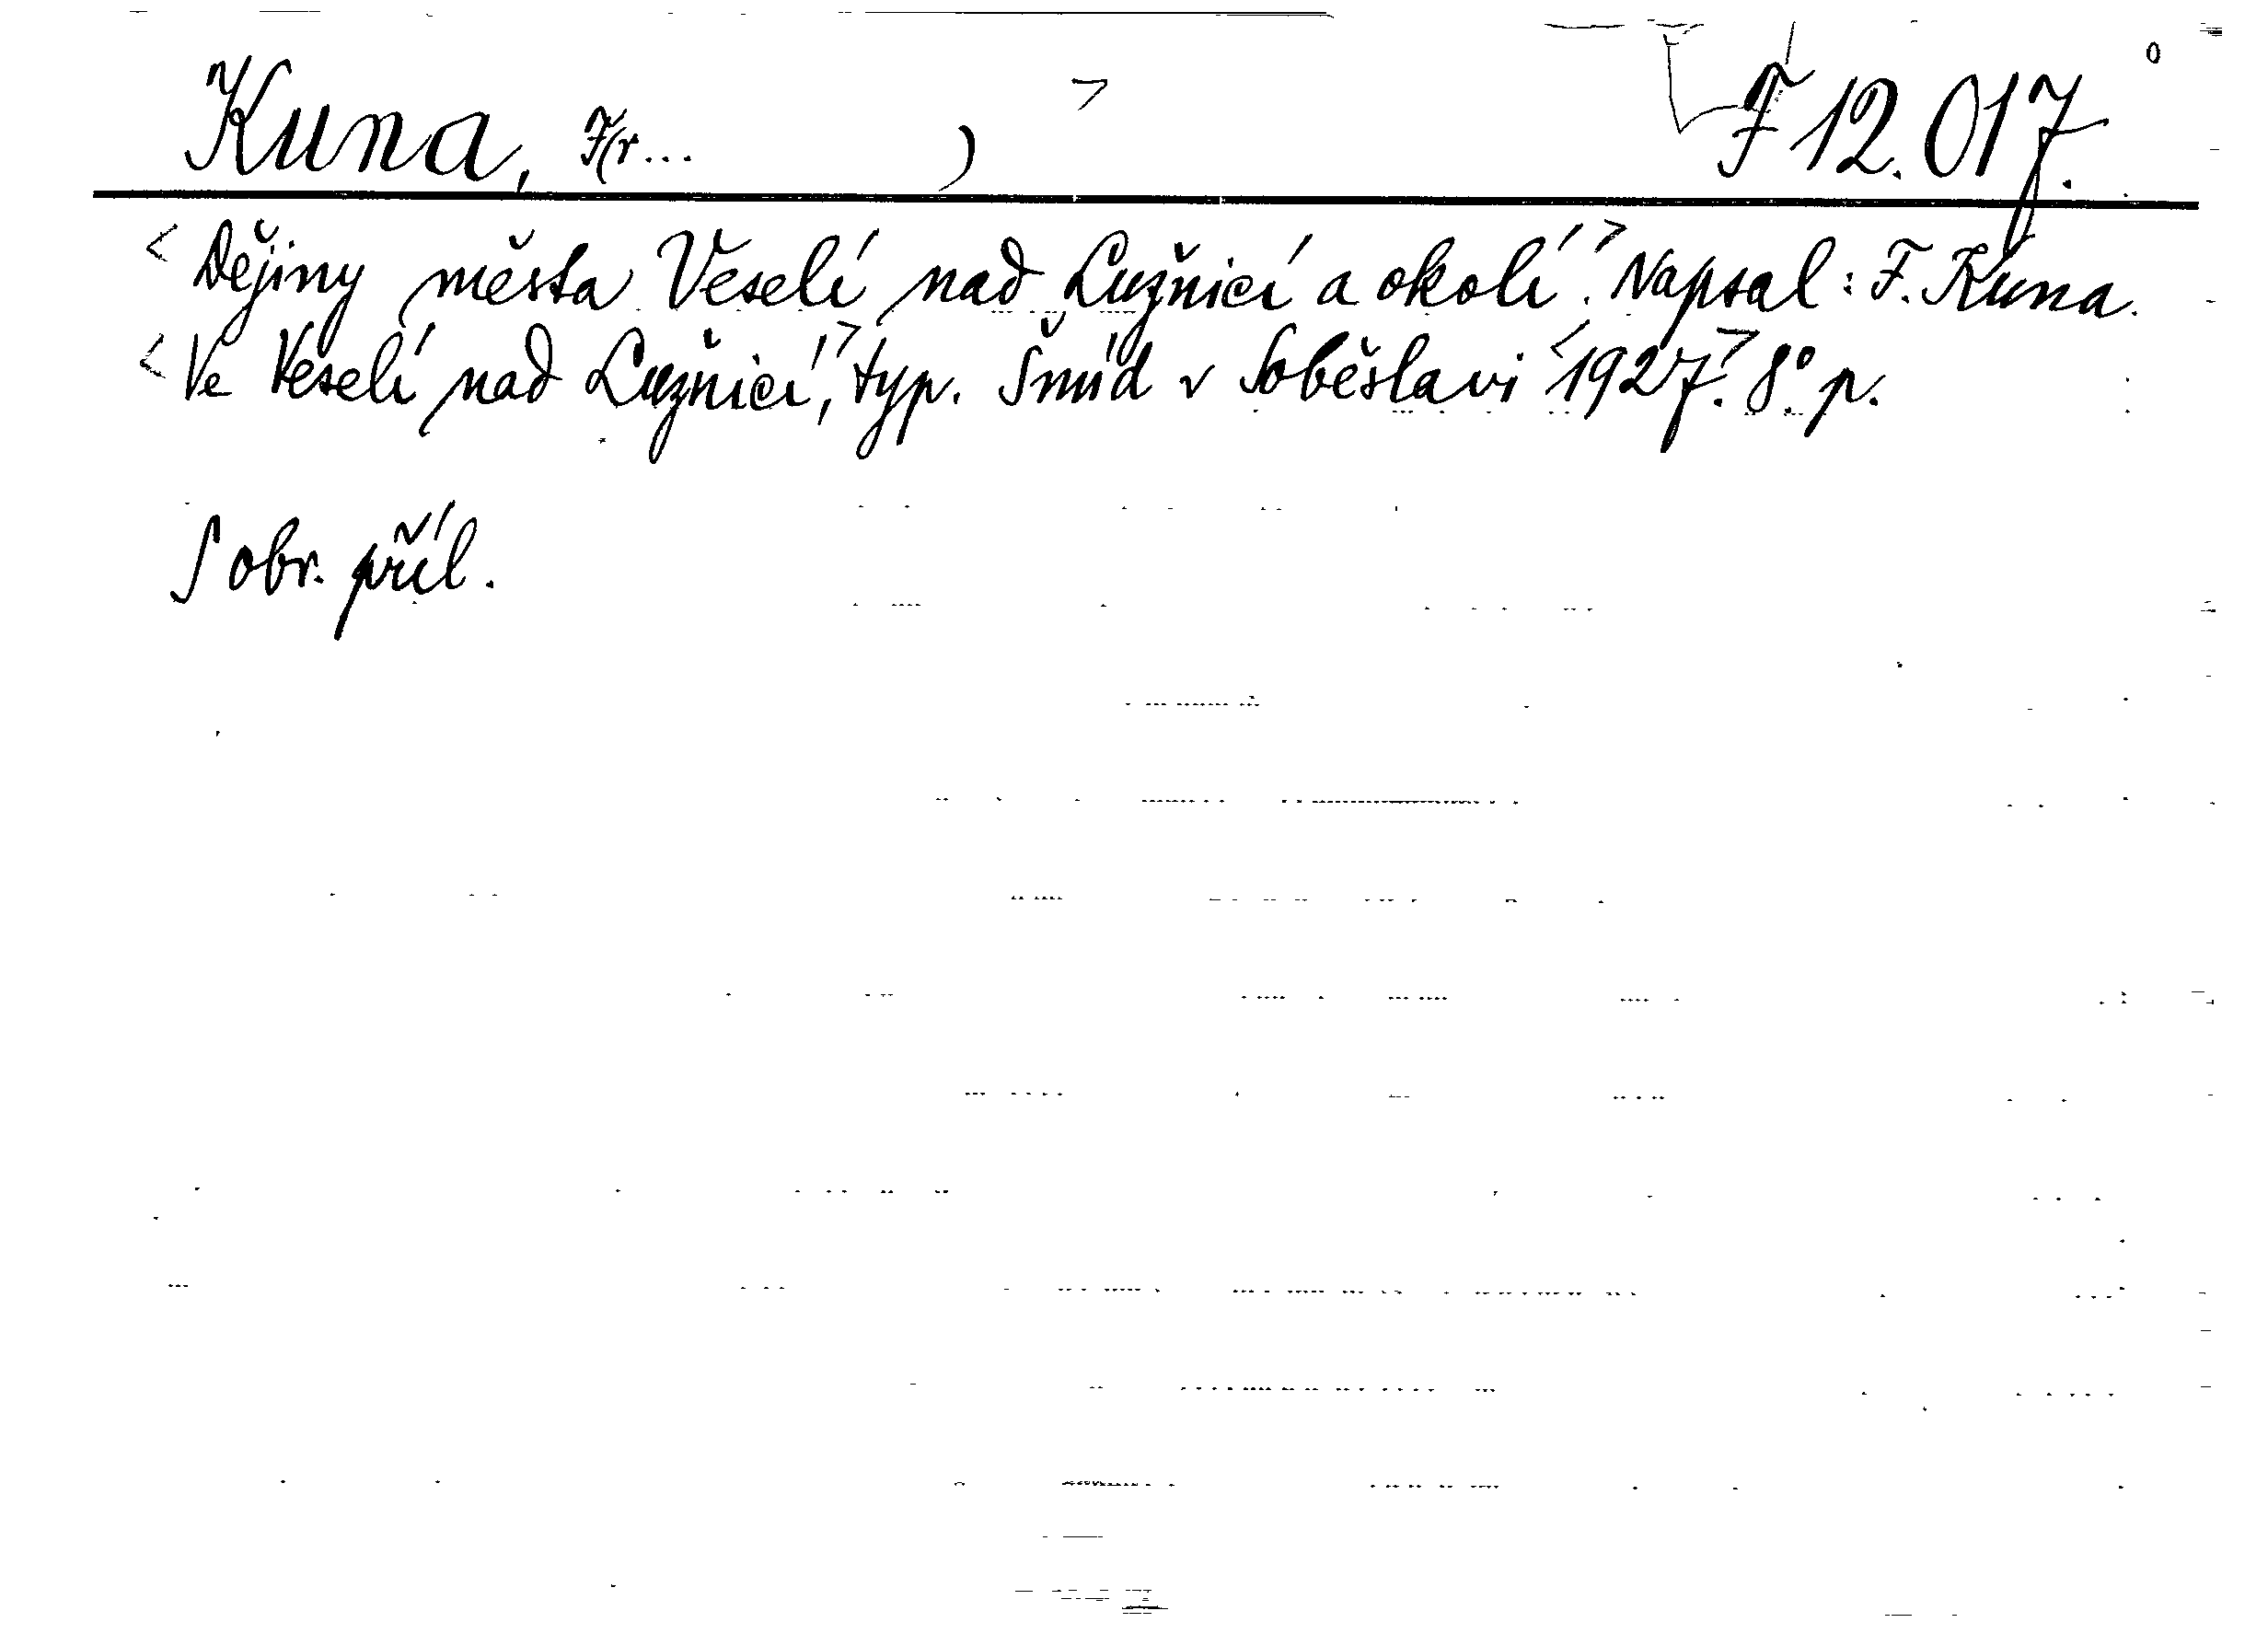 Kuna, F(r... ) > F 12.017.
< Dějiny města Veselí nad Lužnicí a okolí. > Napsal: F. Kuna.
< Ve Veselí nad Lužnicí, > typ. Šmíd v Soběslavi < 1927. > 8°. p.
S obr. příl.